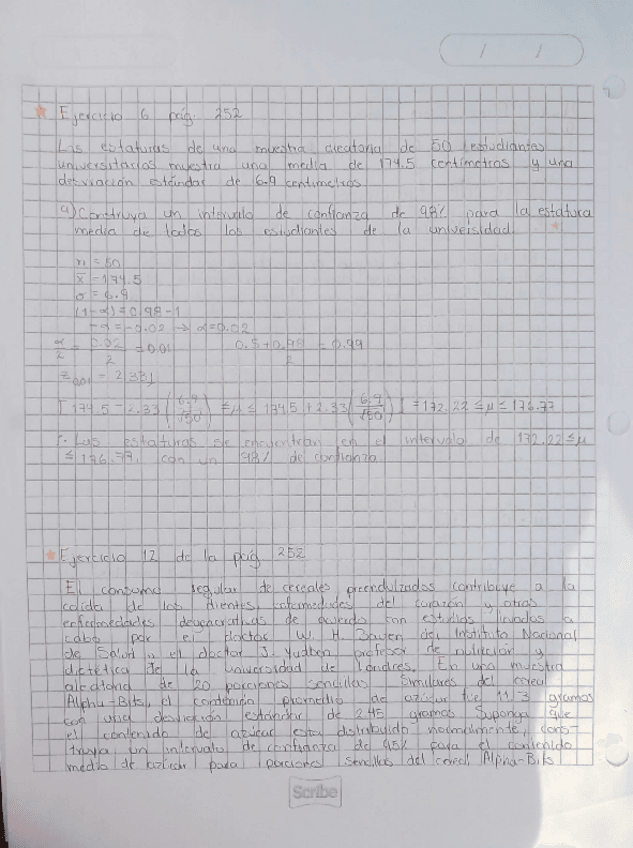 / /
Ejercicio 6 pág. 252
Las estaturas de una muestra aleatoria de 50 estudiantes
universitarios muestra una media de 174.5 centímetros y una
desviación estándar de 6.9 centímetros
a) Construya un intervalo de confianza de 98% para la estatura
media de todos los estudiantes de la universidad
n = 50
x̄ = 174.5
σ = 6.9
(1-α) = 0.98 - 1
-α = -0.02 → α = 0.02
α/2 = 0.02/2 = 0.01 0.5+0.98/2 = 0.99
[174.5 - 2.33 (6.9/√50) ≤ μ ≤ 174.5 + 2.33 (6.9/√50)] = 172.22 ≤ μ ≤ 176.77
Las estaturas se encuentran en el intervalo de 172.22 ≤ μ
≤ 176.77, con un 98% de confianza
Ejercicio 12 de la pág 252
El consumo regular de cereales preendulzados contribuye a la
caída de los dientes, enfermedades del corazón y otras
enfermedades degenerativas de acuerdo con estudios a
cabo por el doctor W. H. Bowen del Instituto Nacional
de Salud y el doctor J. Yudben profesor de nutrición y
dietética de la universidad de Londres. En una muestra
aleatoria de 20 porciones sencillas similares del cereal
Alpha-Bits, el contenido promedio de azúcar fue 11.3 gramos
con una desviación estándar de 2.45 gramos Suponga que
el contenido de azúcar esta distribuido normalmente, cons-
truya un intervalo de confianza de 95% para el contenido
medio de azúcar para porciones sencillas del cereal Alpha-Bits
Scribe